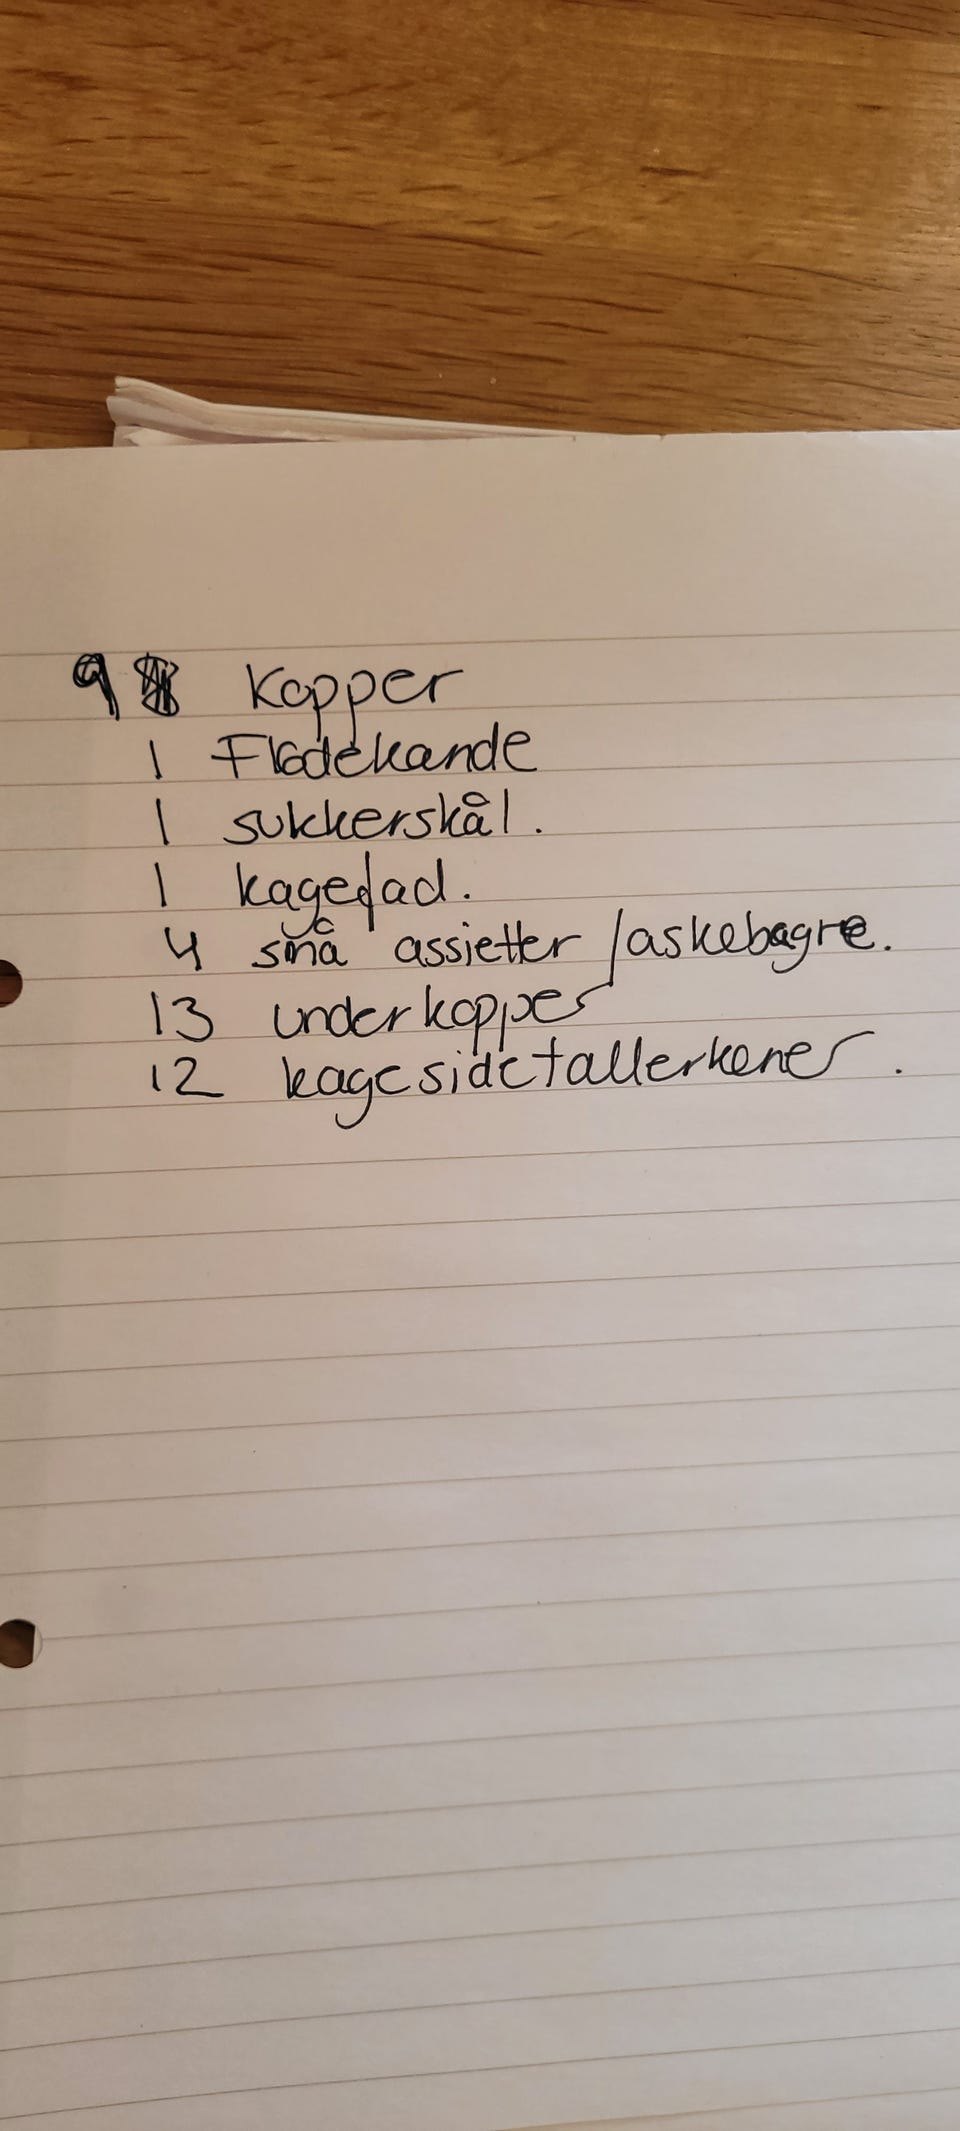 9 Kopper
1 Flødekande
1 sukkerskål.
1 kagefad.
4 små assietter /askebægre.
13 underkopper
12 kagesidetallerkener.